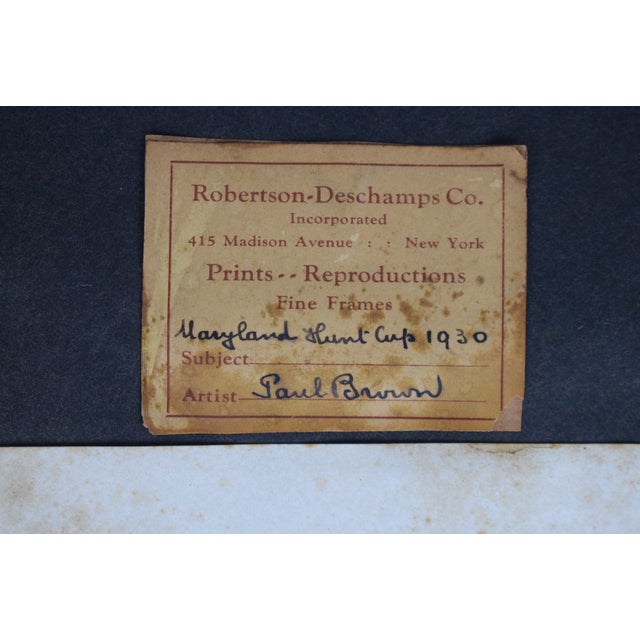 Robertson-Deschamps Co.
Incorporated
415 Madison Avenue : : New York
Prints -- Reproductions
Fine Frames
Maryland Hunt Cup 1930
Subject
Artist Paul Brown